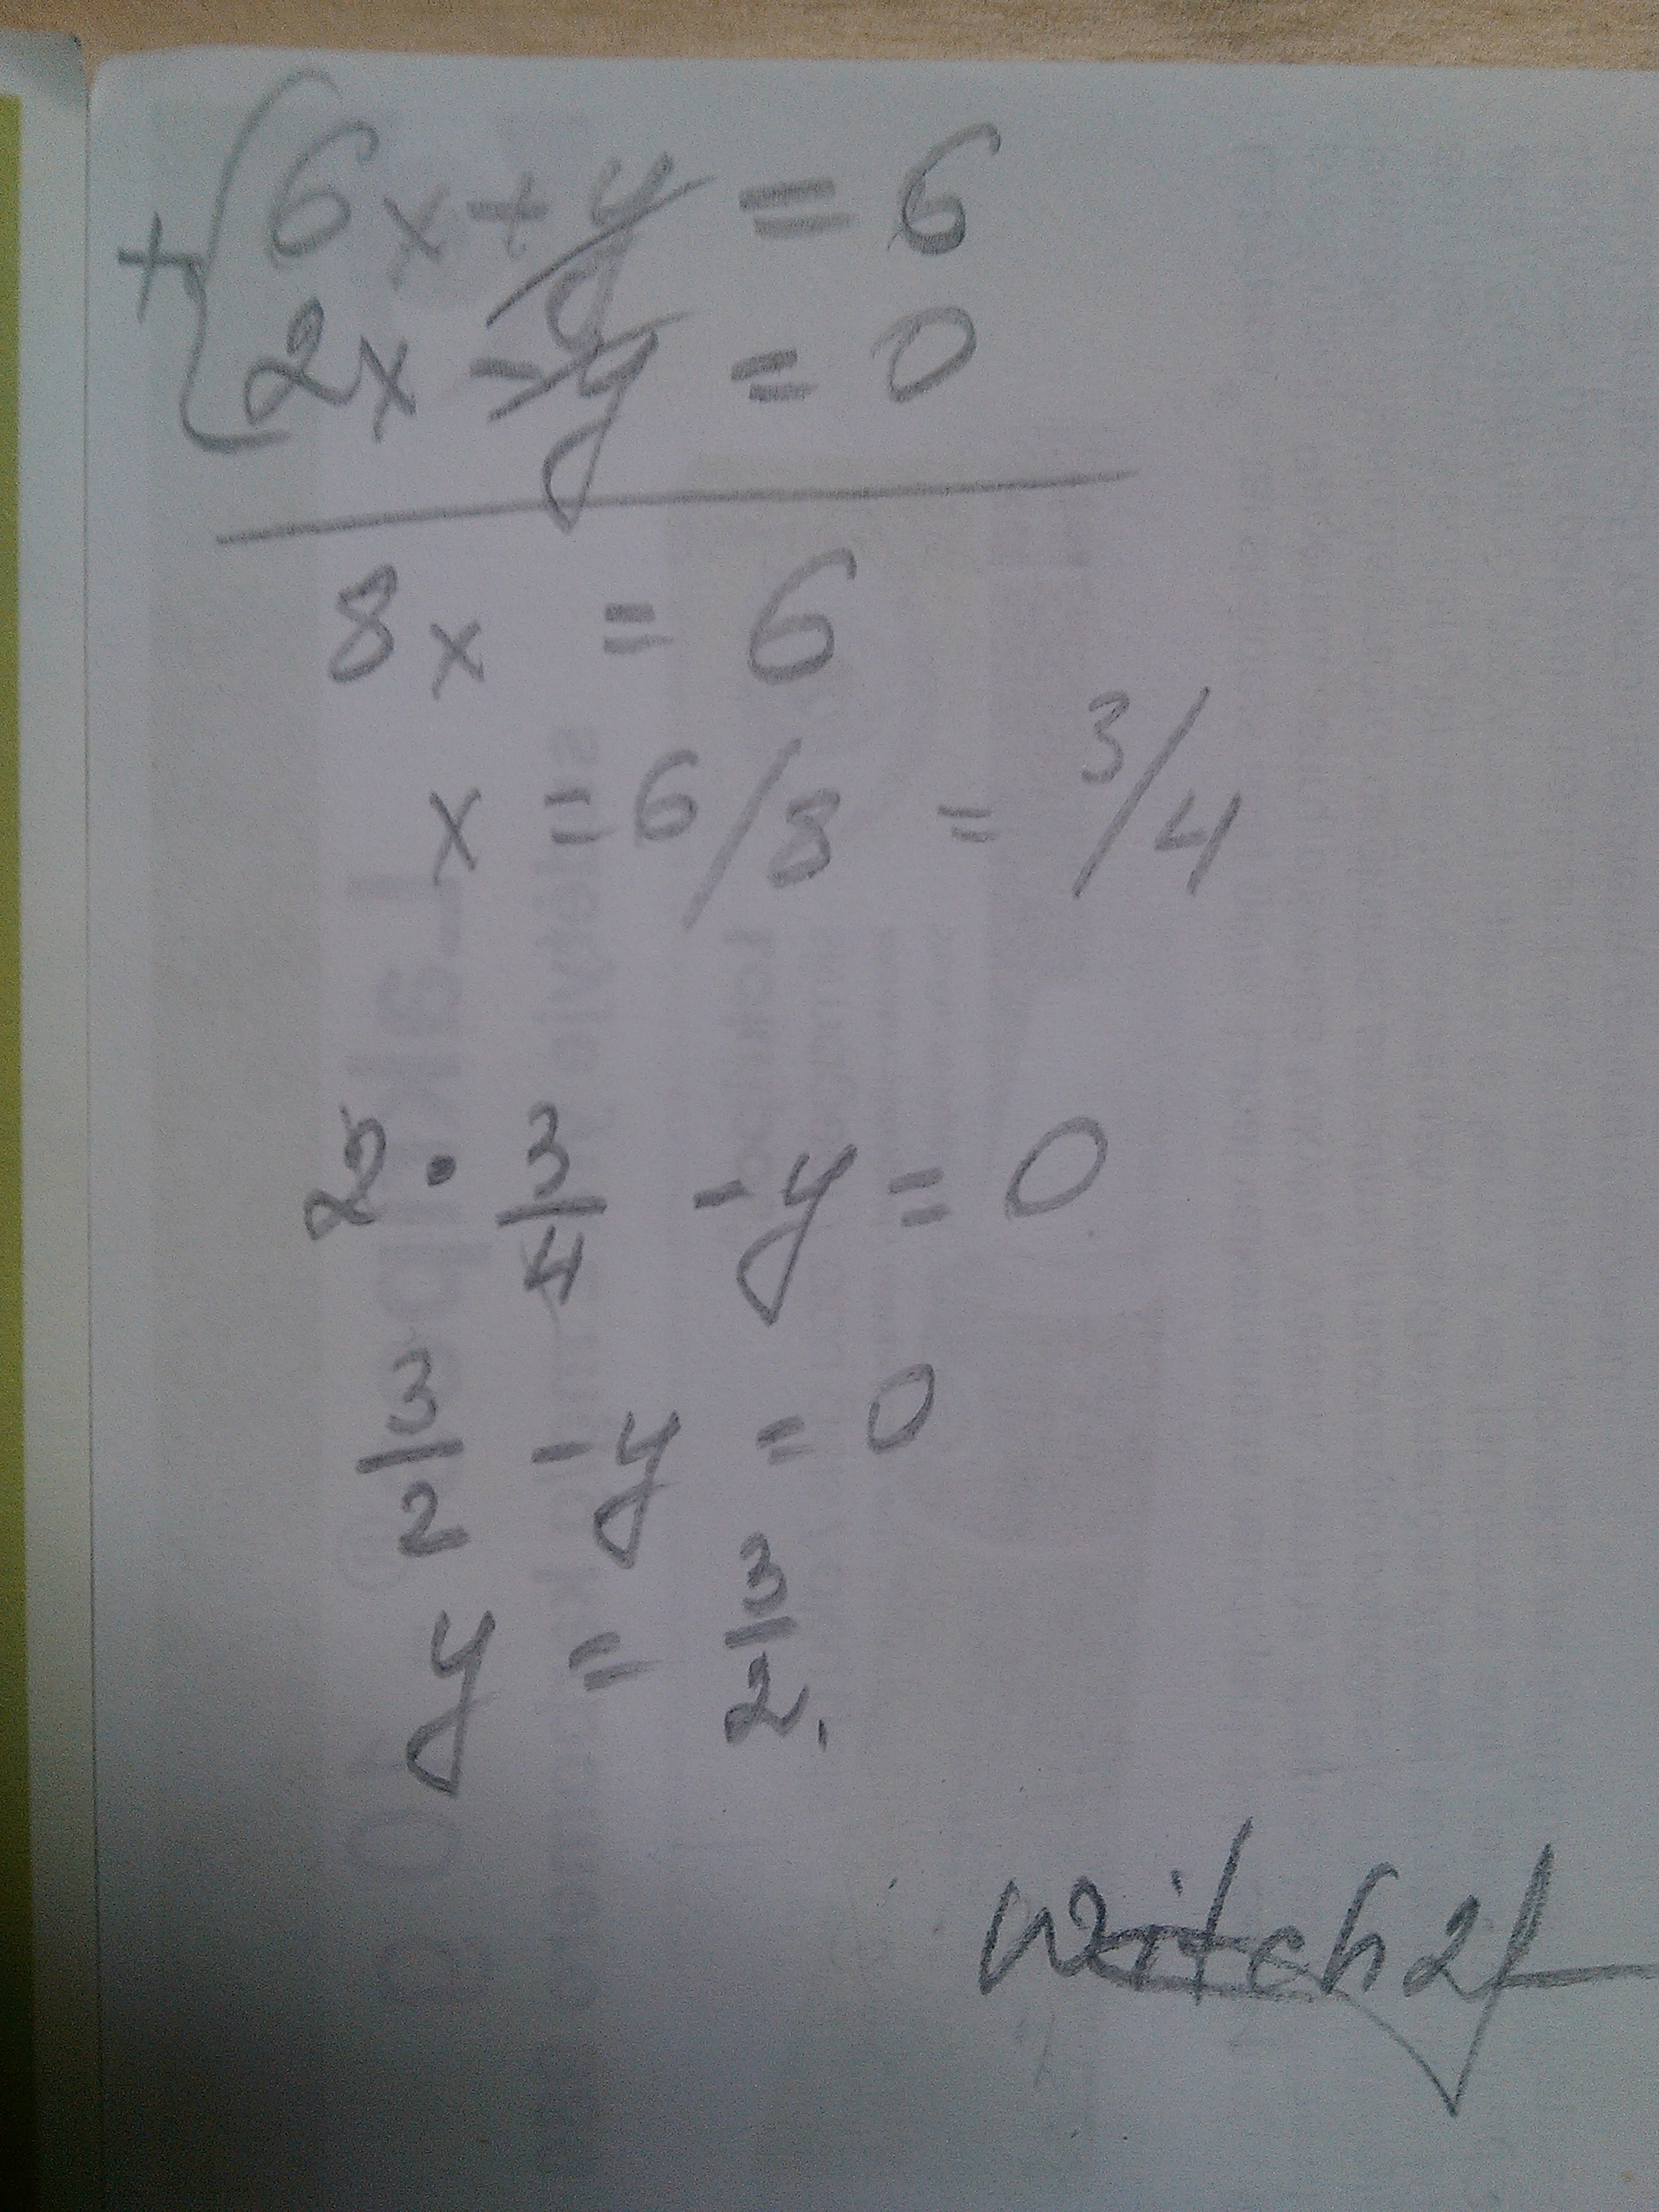 +{6x+y = 6
2x - y = 0
8x = 6
x = 6/8 = 3/4
2 · 3/4 - y = 0
3/2 - y = 0
y = 3/2.
witch21